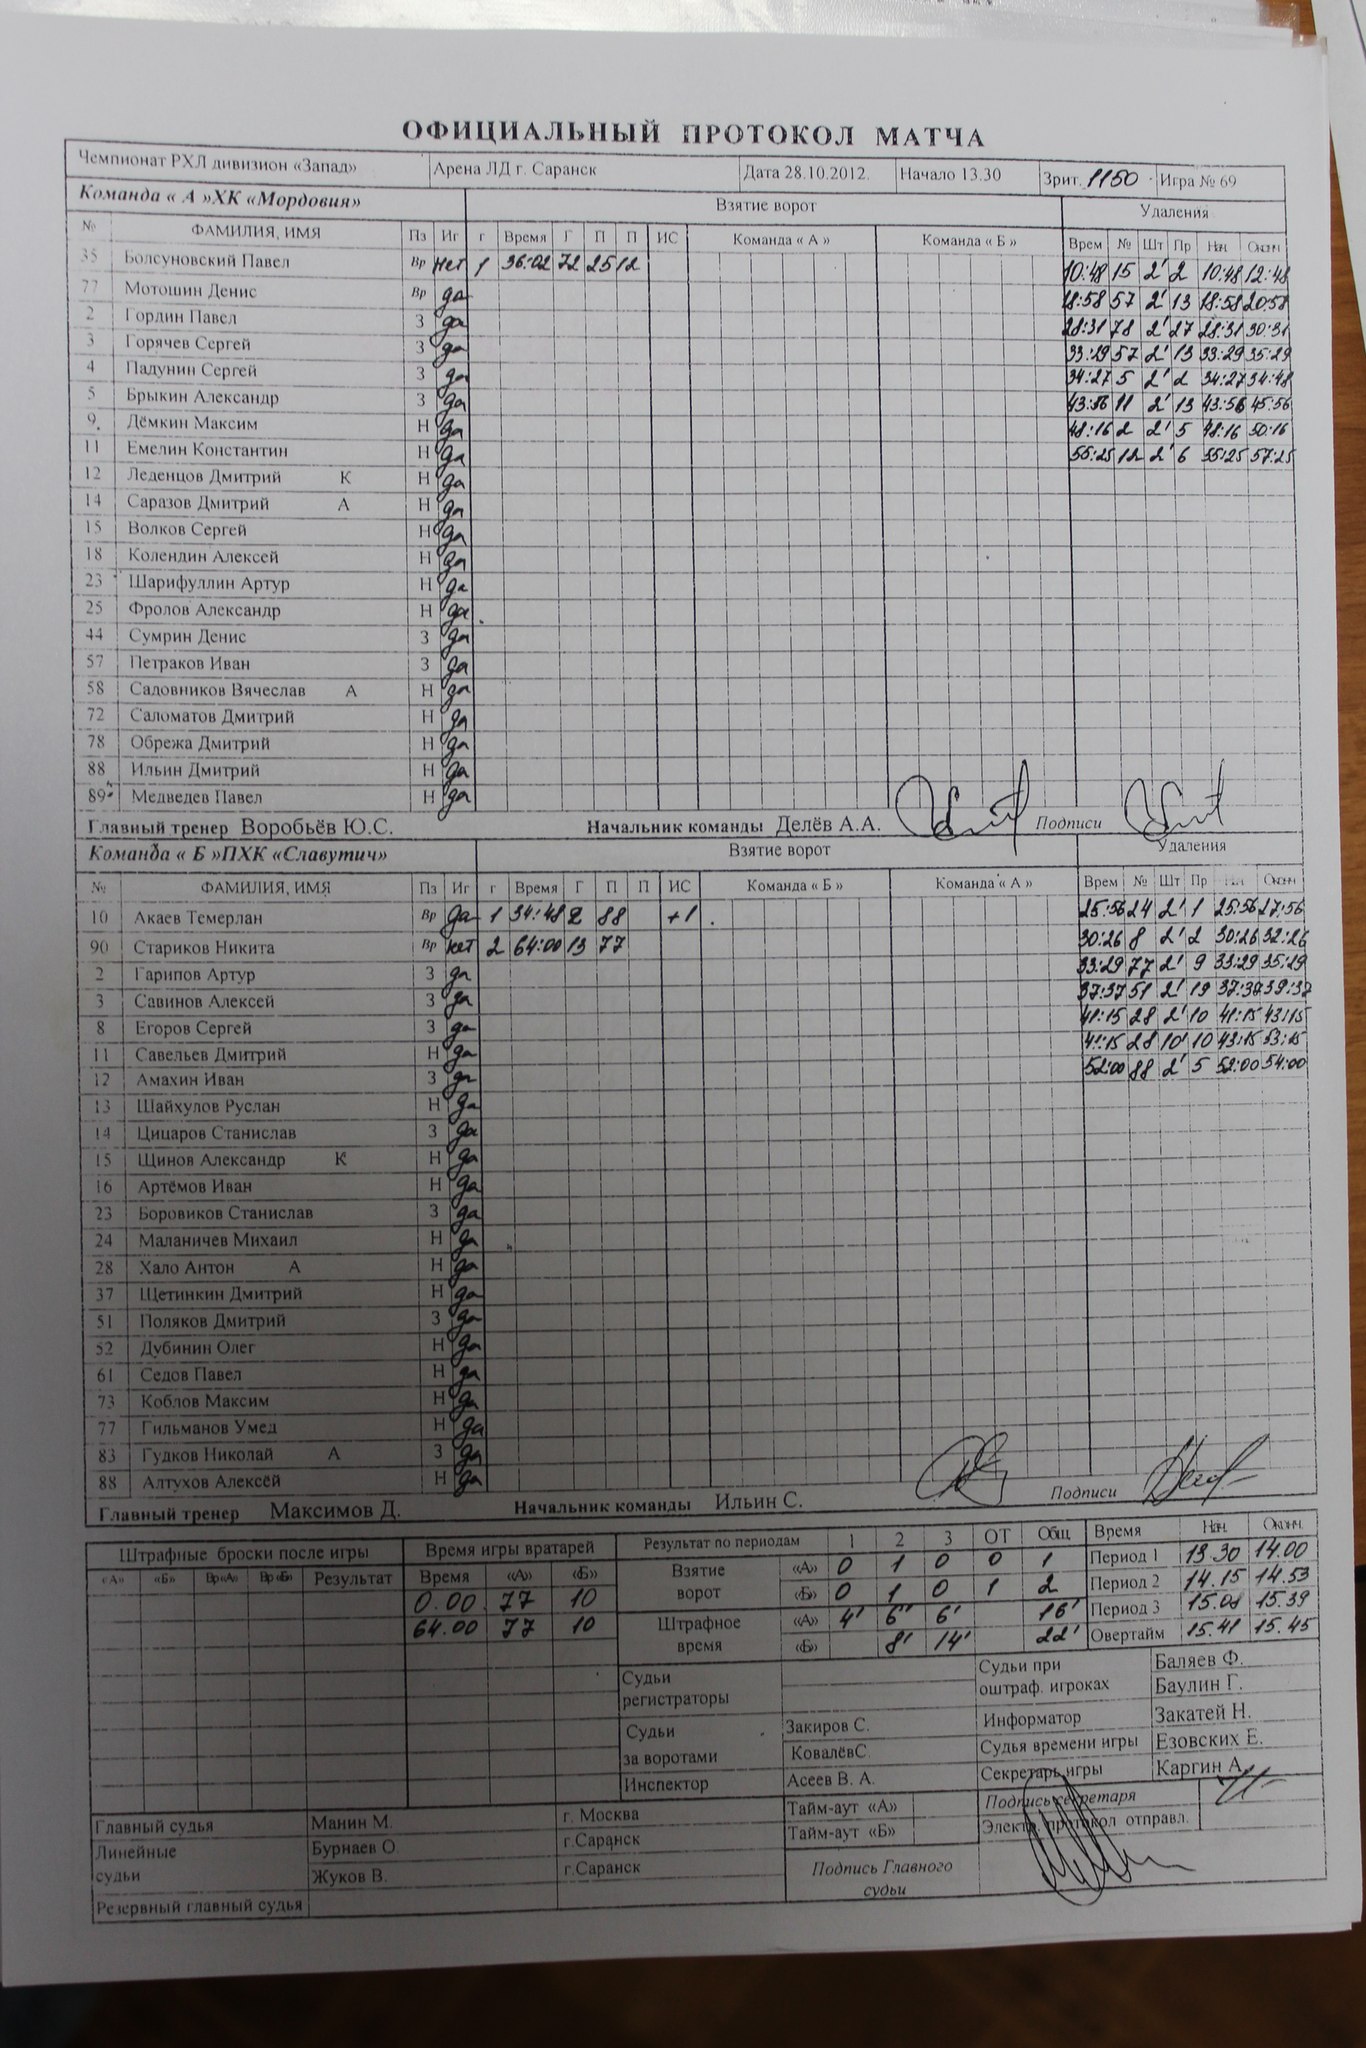 ОФИЦИАЛЬНЫЙ ПРОТОКОЛ МАТЧА
Чемпионат РХЛ дивизион «Запад» Арена ЛД г. Саранск Дата 28.10.2012. Начало 13.30 Зрит. 1150 Игра № 69
Команда « А »ХК «Мордовия» Взятие ворот Удаления
№ ФАМИЛИЯ, ИМЯ Пз Иг г Время Г П П ИС Команда « А » Команда « Б » Врем № Шт Пр Нач Оконч
35 Болсуновский Павел Вр нет 1 36:02 72 25 12 10:48 15 2' 2 10:48 12:48
77 Мотошин Денис Вр да 18:58 57 2' 13 18:58 20:58
2 Гордин Павел З да 28:31 78 2' 27 28:31 30:31
3 Горячев Сергей З да 33:29 57 2' 13 33:29 35:29
4 Падунин Сергей З да 34:27 5 2' 2 34:27 34:48
5 Брыкин Александр З да 43:56 11 2' 13 43:56 45:56
9 Дёмкин Максим Н да 48:16 2 2' 5 48:16 50:16
11 Емелин Константин Н да 55:25 12 2' 6 55:25 57:25
12 Леденцов Дмитрий К Н да
14 Саразов Дмитрий А Н да
15 Волков Сергей Н да
18 Колендин Алексей Н да
23 Шарифуллин Артур Н да
25 Фролов Александр Н да
44 Сумрин Денис З да
57 Петраков Иван З да
58 Садовников Вячеслав А Н да
72 Саломатов Дмитрий Н да
78 Обрежа Дмитрий Н да
88 Ильин Дмитрий Н да
89 Медведев Павел Н да
Главный тренер Воробьёв Ю.С. Начальник команды Делёв А.А. Подписи
Команда « Б »ПХК «Славутич» Взятие ворот Удаления
№ ФАМИЛИЯ, ИМЯ Пз Иг г Время Г П П ИС Команда « Б » Команда « А » Врем № Шт Пр Нач Оконч
10 Акаев Темерлан Вр да 1 34:48 2 88 +1 25:56 24 2' 1 25:56 27:56
90 Стариков Никита Вр нет 2 64:00 13 77 30:26 8 2' 2 30:26 32:26
2 Гарипов Артур З да 33:29 77 2' 9 33:29 35:29
3 Савинов Алексей З да 37:37 51 2' 19 37:37 39:37
8 Егоров Сергей З да 41:15 28 2' 10 41:15 43:15
11 Савельев Дмитрий Н да 41:15 28 10' 10 43:15 53:15
12 Амахин Иван З да 52:00 88 2' 5 52:00 54:00
13 Шайхулов Руслан Н да
14 Цицаров Станислав З да
15 Щинов Александр К Н да
16 Артёмов Иван Н да
23 Боровиков Станислав З да
24 Маланичев Михаил Н да
28 Хало Антон А Н да
37 Щетинкин Дмитрий Н да
51 Поляков Дмитрий З да
52 Дубинин Олег Н да
61 Седов Павел Н да
73 Коблов Максим Н да
77 Гильманов Умед Н да
83 Гудков Николай А З да
88 Алтухов Алексей Н да
Главный тренер Максимов Д. Начальник команды Ильин С. Подписи
Штрафные броски после игры Время игры вратарей Результат по периодам 1 2 3 ОТ Общ Время Нач. Оконч.
«А» «Б» Вр«А» Вр«Б» Результат Время «А» «Б» Взятие ворот «А» 0 1 0 0 1 Период 1 13.30 14.00
0.00 77 10 «Б» 0 1 0 1 2 Период 2 14.15 14.53
64.00 77 10 Штрафное время «А» 4' 6' 6' 16' Период 3 15.08 15.39
«Б» 8' 14' 22' Овертайм 15.41 15.45
Судьи регистраторы Судьи при оштраф. игроках Баляев Ф.
Баулин Г.
Судьи за воротами Закиров С. Информатор Закатей Н.
КовалёвС Судья времени игры Езовских Е.
Инспектор Асеев В. А. Секретарь игры Каргин А.
Главный судья Манин М. г. Москва Тайм-аут «А» Подпись секретаря
Линейные судьи Бурнаев О г.Саранск Тайм-аут «Б» Электр. протокол отправл.
Жуков В. г.Саранск Подпись Главного судьи
Резервный главный судья